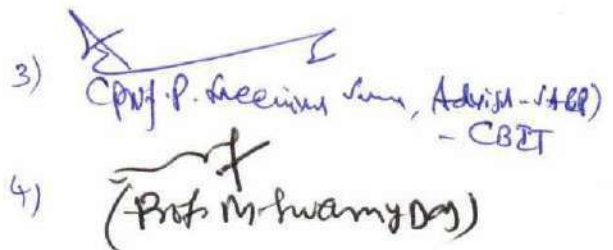 3)
(Prof. P. Sreenivas Sarma, Advisor-
- CBIT
4)
(Prof. M. Swamy Das)